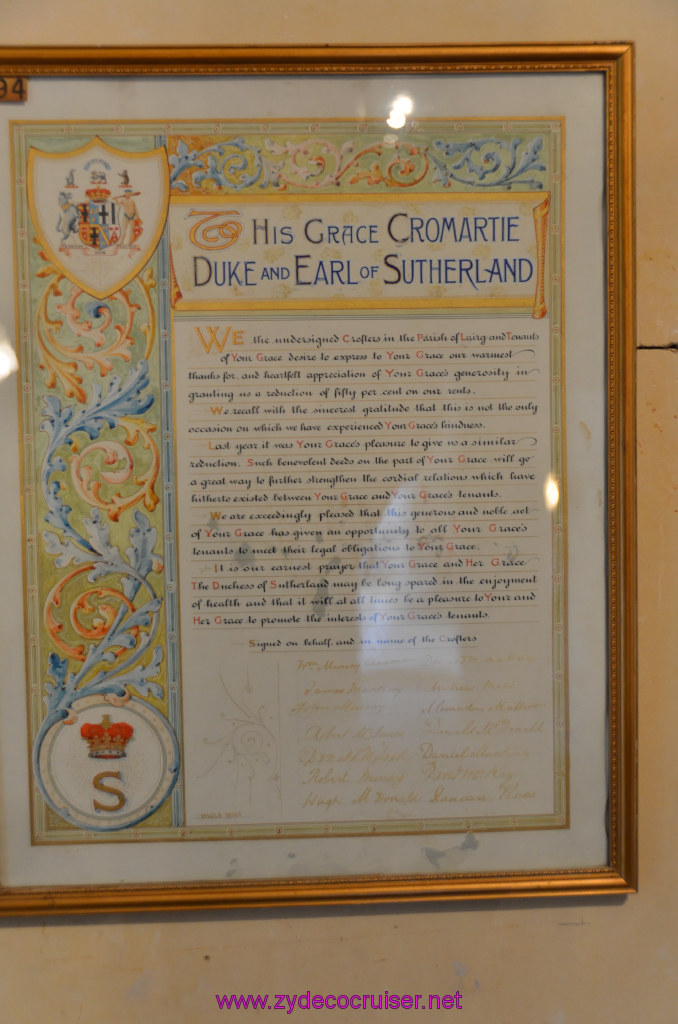 94
To His Grace Cromartie
Duke and Earl of Sutherland
We the undersigned Crofters in the Parish of Lairg and Tenants
of Your Grace desire to express to Your Grace our warmest
thanks for, and heartfelt appreciation of Your Grace's generosity in
granting us a reduction of fifty per cent on our rents.
We recall with the sincerest gratitude that this is not the only
occasion on which we have experienced Your Grace's kindness.
Last year it was Your Grace's pleasure to give us a similar
reduction. Such benevolent deeds on the part of Your Grace will go
a great way to further strengthen the cordial relations which have
hitherto existed between Your Grace and Your Grace's tenants.
We are exceedingly pleased that this generous and noble act
of Your Grace has given an opportunity to all Your Grace's
tenants to meet their legal obligations to Your Grace.
It is our earnest prayer that Your Grace and Her Grace
The Duchess of Sutherland may be long spared in the enjoyment
of health and that it will at all times be a pleasure to Your and
Her Grace to promote the interests of Your Grace's tenants.
Signed on behalf, and in name of the Crofters
Wm Murray
James
Murray
Robert Donald McDonald
Donald Daniel
Robert Murray
Hugh McDonald Duncan Ross
S
www.zydecocruiser.net